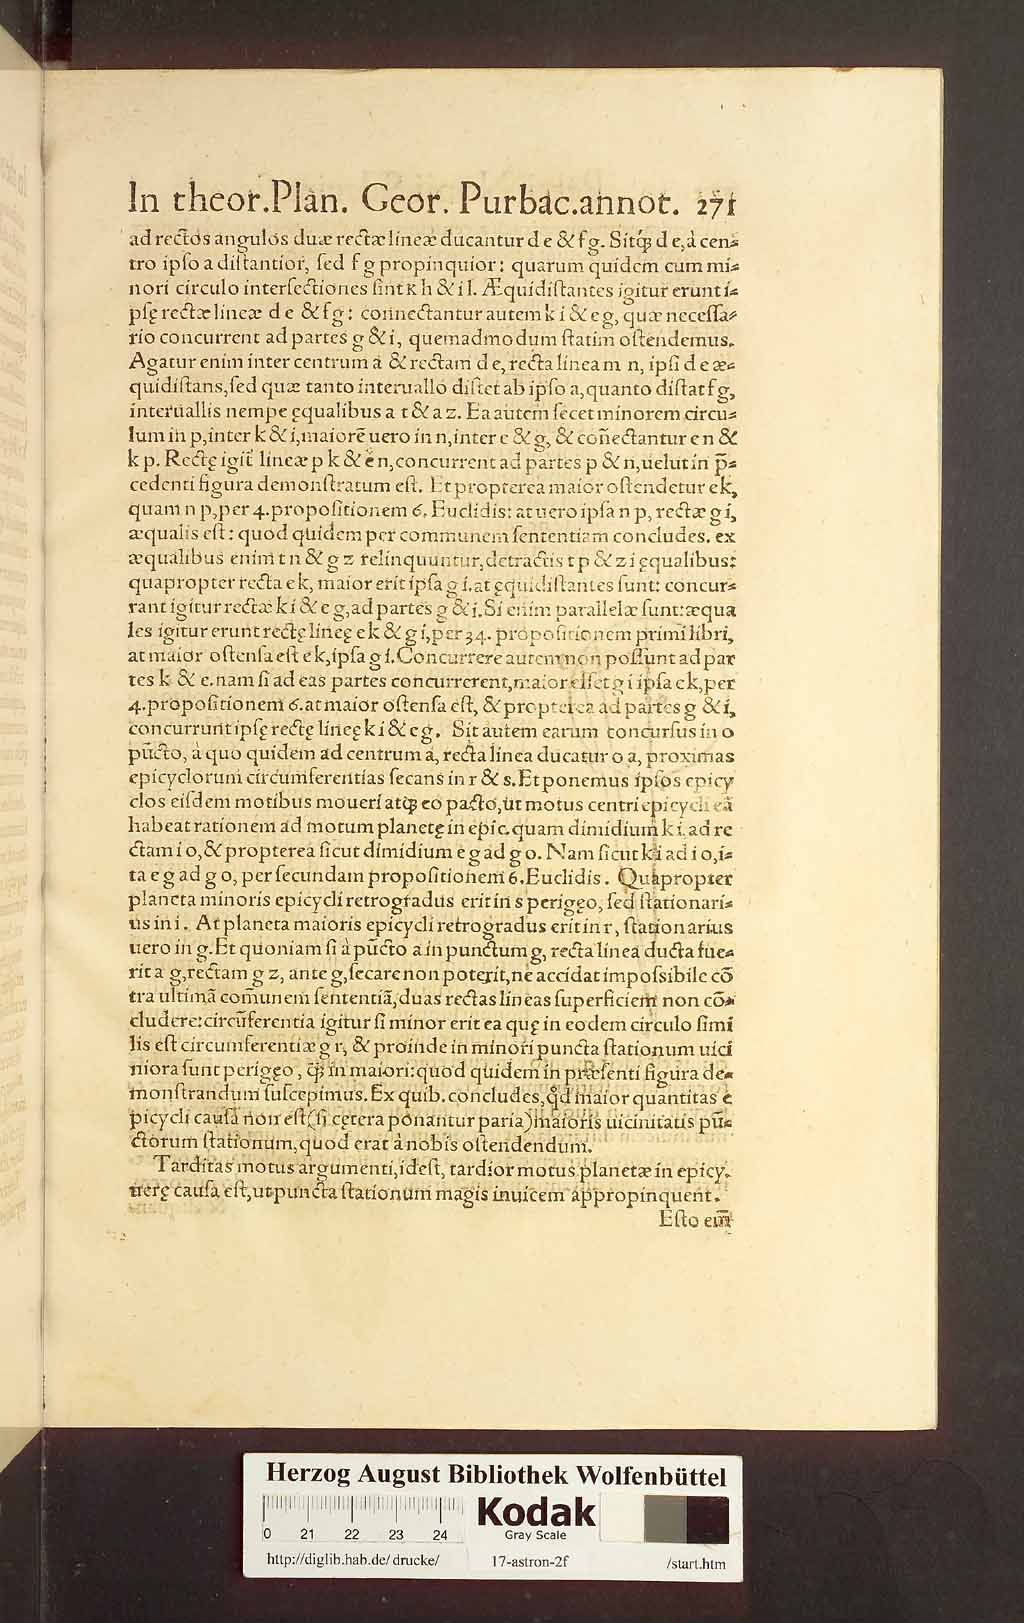 In theor.Plan. Geor. Purbac.annot. 271
ad rectos angulos duæ rectæ lineæ ducantur d e & f g. Sitq́ꝫ d e, à cen⸗
tro ipso a distantior, sed f g propinquior: quarum quidem cum mi⸗
nori circulo intersectiones sint k h & i l. Æquidistantes igitur erunt i⸗
psę rectæ lineæ d e & f g: connectantur autem k i & e g, quæ necessa⸗
rio concurrent ad partes g & i, quemadmodum statim ostendemus.
Agatur enim inter centrum a & rectam d e, recta linea m n, ipsi d e æ⸗
quidistans, sed quæ tanto interuallo distet ab ipso a, quanto distat f g,
interuallis nempe ęqualibus a t & a z. Ea autem secet minorem circu⸗
lum in p, inter k & i, maiorẽ uero in n, inter e & g, & coñectantur e n &
k p. Rectę igit̃ lineæ p k & e n, concurrent ad partes p & n, uelut in p̃⸗
cedenti figura demonstratum est. Et propterea maior ostendetur e k,
quam n p, per 4. propositionem 6. Euclidis: at uero ipsa n p, rectæ g i,
æqualis est: quod quidem per communem sententiam concludes. ex
æqualibus enim t n & g z relinquuntur, detractis t p & z i ęqualibus:
quapropter recta e k, maior erit ipsa g i. at ęquidistantes sunt: concur⸗
rant igitur rectæ k i & e g, ad partes g & i. Si enim parallelæ sunt: æqua
les igitur erunt rectę lineę e k & g i, per 34. propositionem primi libri,
at maior ostensa est e k, ipsa g i. Concurrere autem non possunt ad par
tes k & e. nam si ad eas partes concurrerent, maior esset g i ipsa e k, per
4. propositionem 6. at maior ostensa est, & propterea ad partes g & i,
concurrunt ipsę rectę lineę k i & e g. Sit autem earum concursus in o
pũcto, à quo quidem ad centrum a, recta linea ducatur o a, proximas
epicyclorum circumferentias secans in r & s. Et ponemus ipsos epicy
clos eisdem motibus moueri atq́ꝫ eo pacto, ut motus centri epicycli eã
habeat rationem ad motum planetę in epic. quam dimidium k i. ad re
ctam i o, & propterea sicut dimidium e g ad g o. Nam sicut k i ad i o, i⸗
ta e g ad g o, per secundam propositionem 6. Euclidis. Quapropter
planeta minoris epicycli retrogradus erit in s perigęo, sed stationari⸗
us in i. At planeta maioris epicycli retrogradus erit in r, stationarius
uero in g. Et quoniam si à pũcto a in punctum g, recta linea ducta fue⸗
rit a g, rectam g z, ante g, secare non poterit, ne accidat impossibile cõ
tra ultimã com̃unem sententiã, duas rectas lineas superficiem non cõ⸗
cludere: circũferentia igitur si minor erit ea quę in eodem circulo simi
lis est circumferentiæ g r, & proinde in minori puncta stationum uici
niora sunt perigęo, q̃ꝫ in maiori: quod quidem in præsenti figura de⸗
monstrandum suscepimus. Ex quib. concludes, q̃d maior quantitas e
picycli causa non est (si cętera ponantur paria) maioris uicinitatis pũ⸗
ctorum stationum, quod erat à nobis ostendendum.
Tarditas motus argumenti, id est, tardior motus planetæ in epicy.
uerę causa est, ut puncta stationum magis inuicem appropinquent.
Esto em̃
Herzog August Bibliothek Wolfenbüttel
0 21 22 23 24
Kodak
Gray Scale
http://diglib.hab.de/drucke/ 17-astron-2f /start.htm